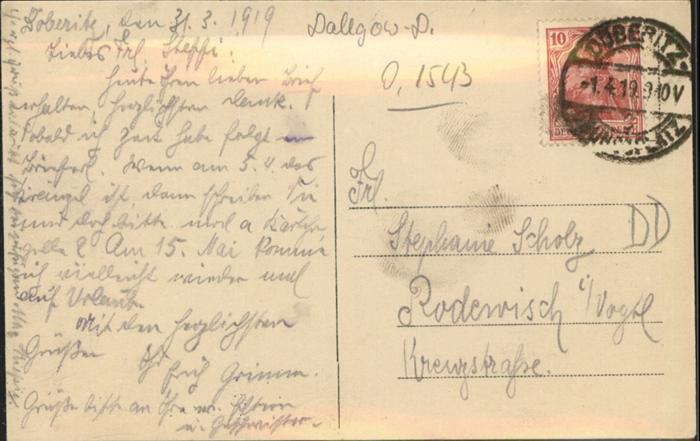 Döberitz, den 31.3.1919
Liebes Frl. Steffi!
Heute Ihren lieben Brief
erhalten, herzlichsten Dank.
Sobald ich Zeit habe folgt ein
Brieferl. Wenn am 5.4. das
ist, dann schreiben Sie
mir doch bitte noch a Kärtche
gelle? Am 15. Mai komme
ich vielleicht wieder mal
auf Urlaub.
Mit den herzlichsten
Grüßen
Ihr
Erich Grimm.
Grüße bitte an Ihre w. Eltern
u. Geschwister.
Dallgow-D.
0,1543
10
DÖBERITZ
-1.4.19.9-10V
Frl.
Stephanie Scholz
DD
Rodewisch i/Vogtl
Kreuzstraße.